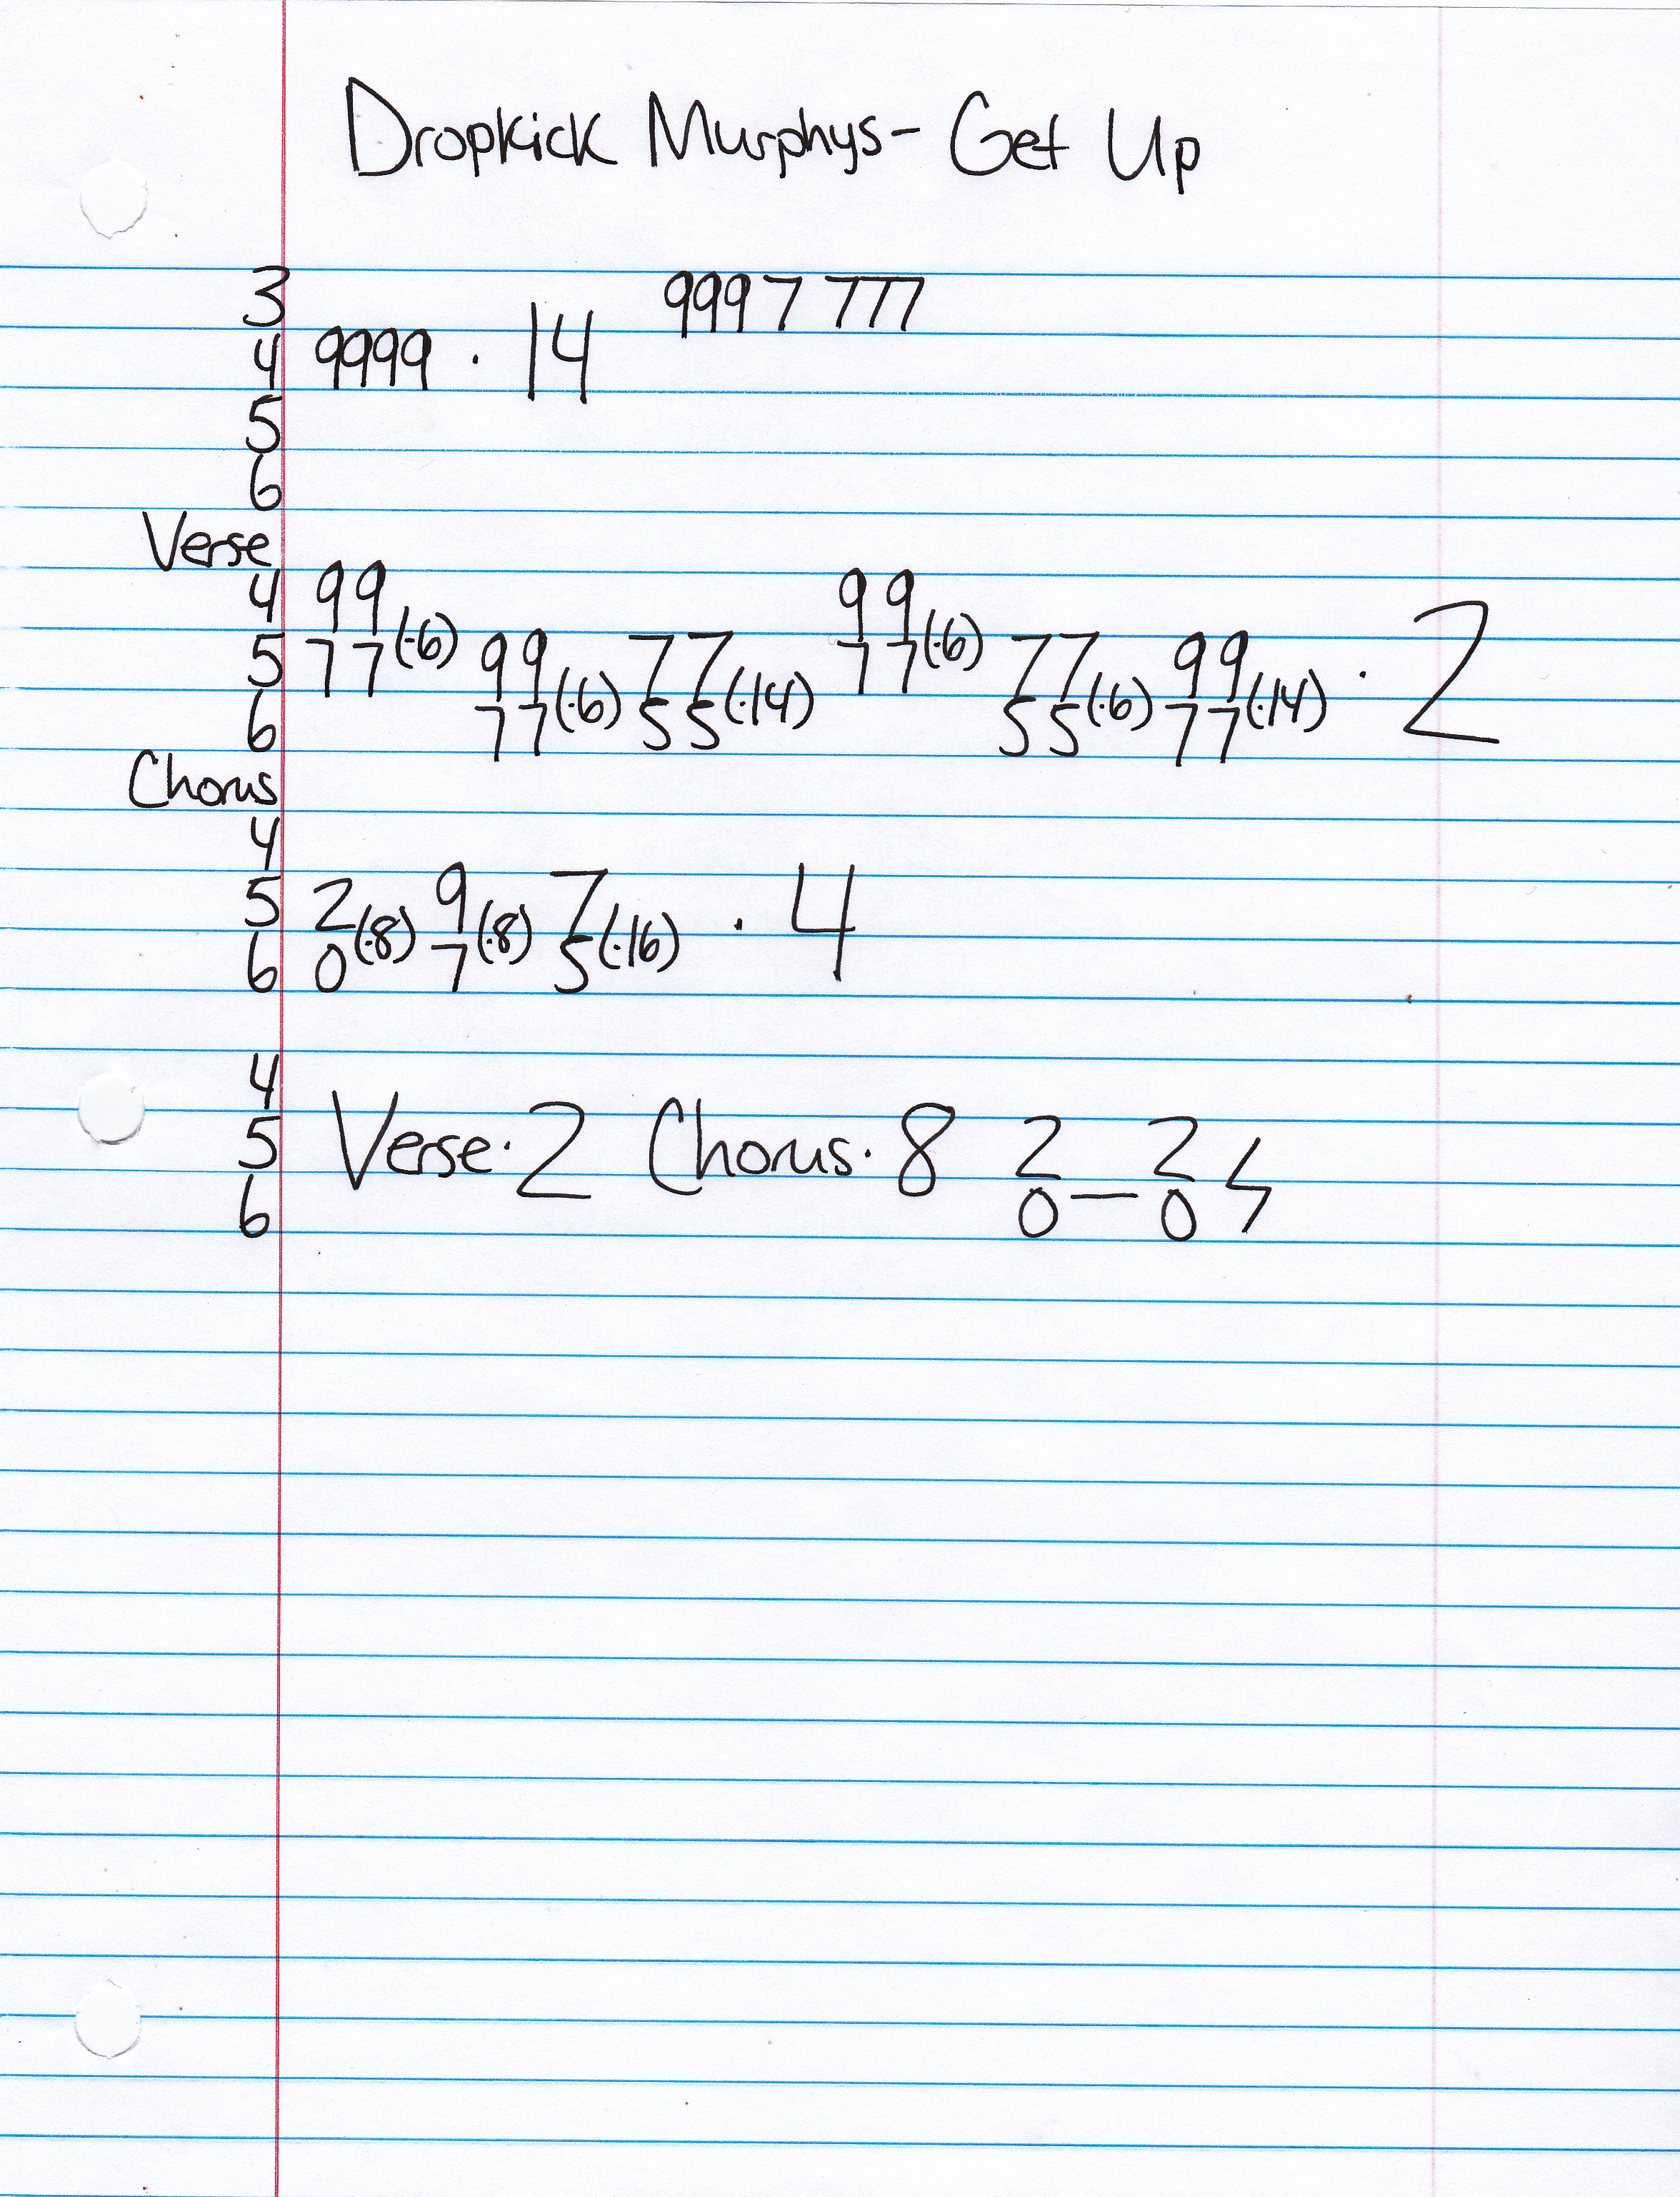 Dropkick Murphys - Get Up
3 9997 777
4 9999 · 14
5
6
Verse
4 99 99
5 77(·6) 99 77 77(·6) 77 99 · 2
6 77(·6) 55(·14) 55(·6) 77(·14)
Chorus
4
5 2 9 7 · 4
6 0(·8) 7(·8) 5(·16)
4
5 Verse · 2 Chorus · 8 2 2
6 0 — 0